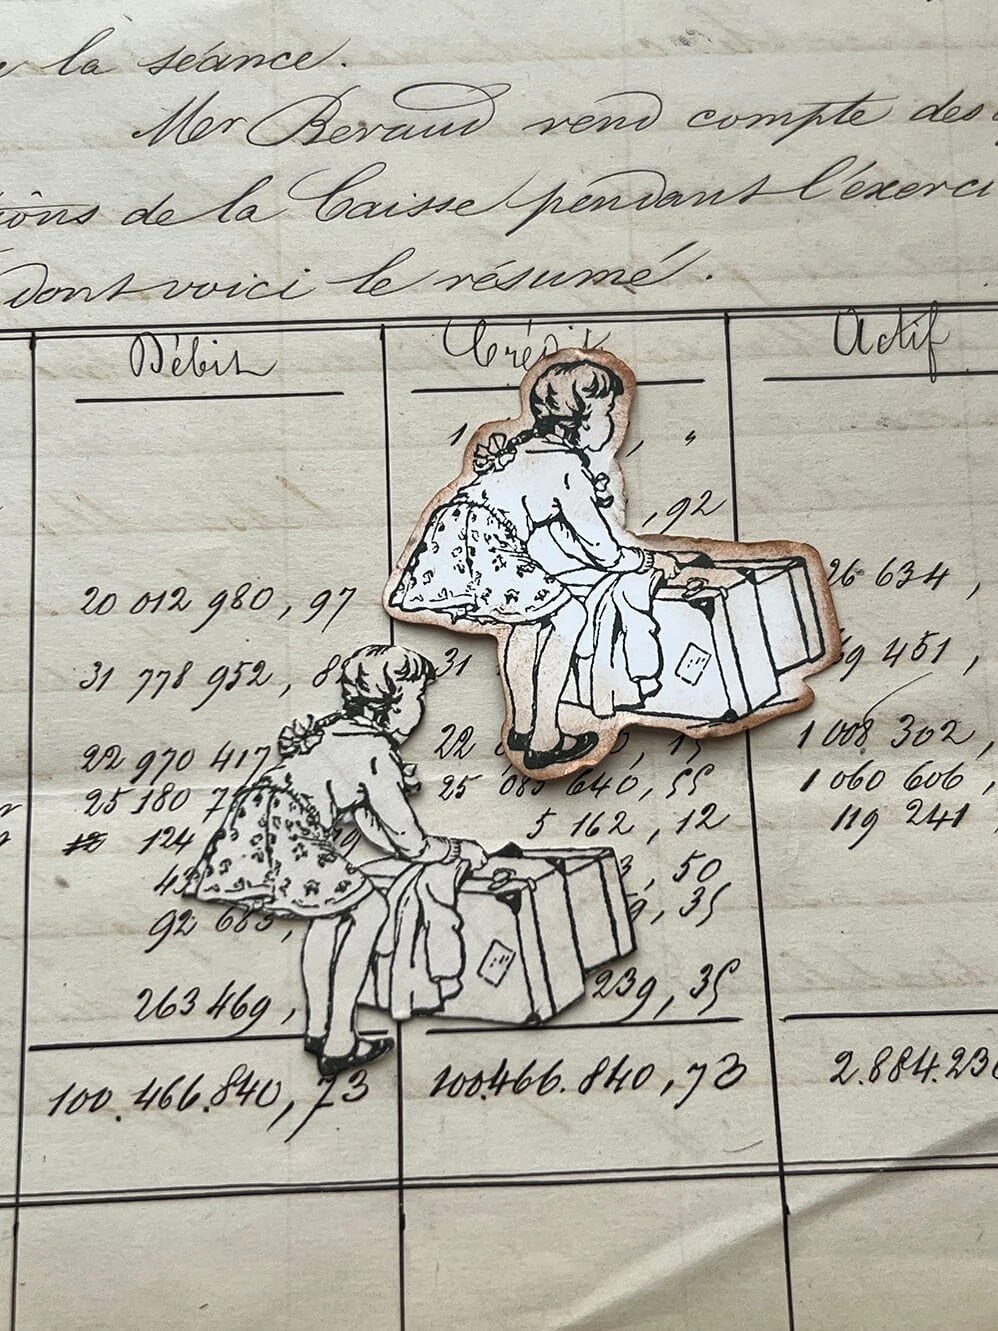 la séance.
Mer Beraud rend compte des
tiôns de la Caisse pendant l'éxerci
dont voici le résumé.
Débit Crédit Actif
1 , "
, 92
20 012 980 , 97 26 634 ,
31 778 952 , 8 31 59 451 ,
22 970 417 22 , 15 1 008 302 ,
25 180 7 25 085 640 , 55 1 060 606 ,
124 19 5 162 , 12 119 241 ,
43 3, 50
92 685, 9, 35
263 469 , 239 , 35
100.466.840,73 100.466.840,73 2.884.236